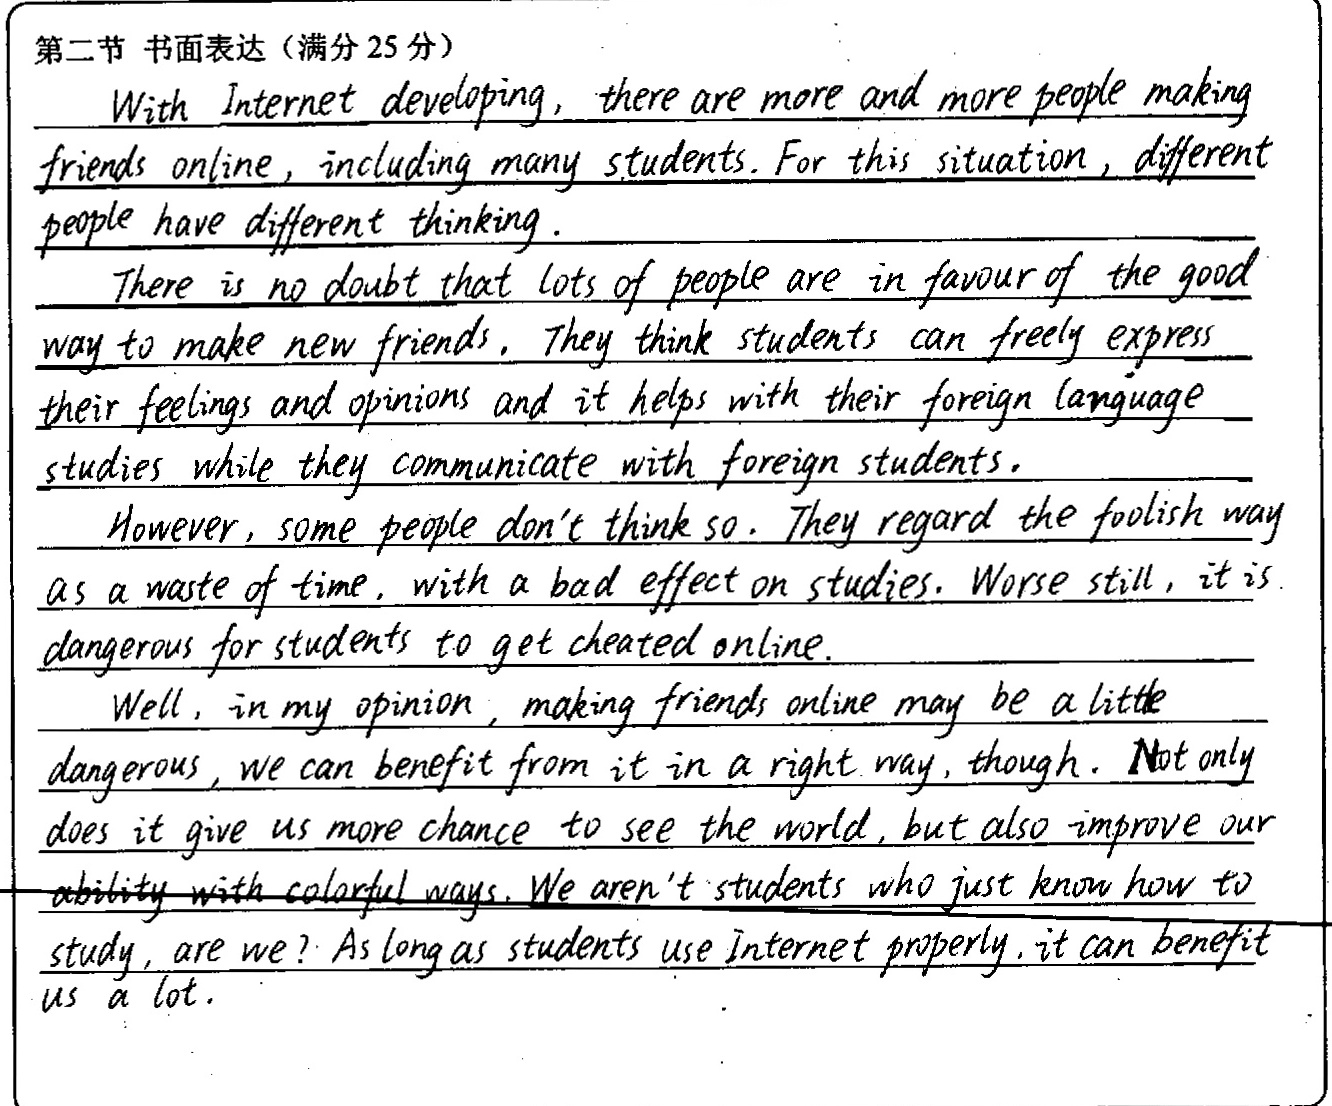 第二节 书面表达（满分 25 分）
With Internet developing, there are more and more people making
friends online, including many students. For this situation, different
people have different thinking.
There is no doubt that lots of people are in favour of the good
way to make new friends. They think students can freely express
their feelings and opinions and it helps with their foreign language
studies while they communicate with foreign students.
However, some people don't think so. They regard the foolish way
as a waste of time, with a bad effect on studies. Worse still, it is
dangerous for students to get cheated online.
Well, in my opinion, making friends online may be a little
dangerous, we can benefit from it in a right way, though. Not only
does it give us more chance to see the world, but also improve our
ability with colorful ways. We aren't students who just know how to
study, are we? As long as students use Internet properly, it can benefit
us a lot.